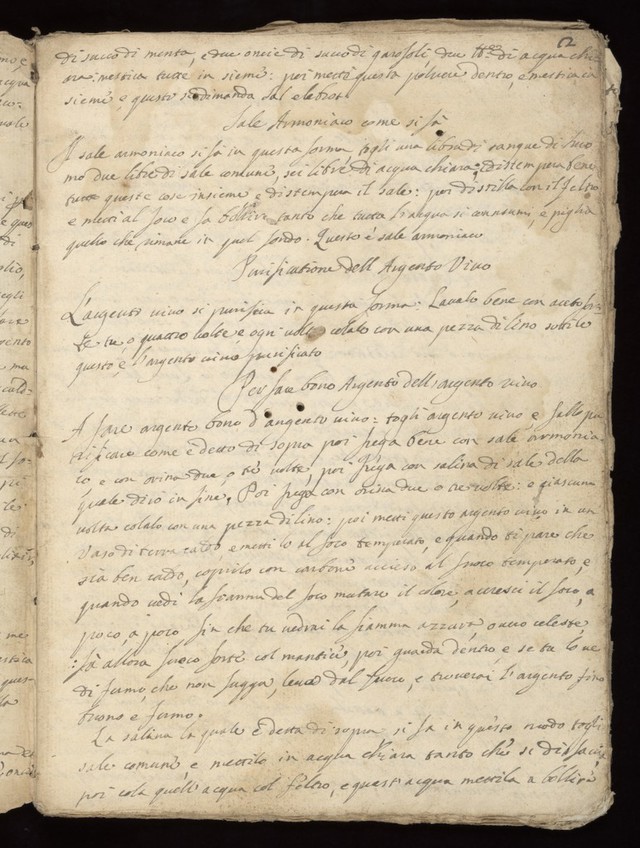 62
di succo di menta, e due oncie di succo di garofoli, due di acqua chi
ara: mestica tutte in sieme: poi metti questa polvere dentro, e mestica in
sieme e questo si dimanda sal elebrot
Sale Armoniaco come si fà
Il sale armoniaco si fà in questa forma togli una libra di sangue di huo
mo due libre di sale comune, sei libre di acqua chiara: e distempera bene
tutte queste cose insieme e distempera il sale: poi distilla con il feltro
e metti al foco e fa bollire tanto che tutta l'acqua si consumi, e piglia
quello che rimane in quel fondo. Questo è sale armoniaco
Purificatione dell Argento Vivo
L'argento vivo si purifica in questa forma: Lavalo bene con aceto for
te tre, o quattro volte e ogni volta colalo con una pezza di lino subtile
questo, è l'argento vivo purificato
Per fare bono Argento dell'argento vivo
A fare argento bono d'argento vivo: togli argento vivo e fallo pu
rificare come è detto di sopra poi frega bene con sale armonia
co e con orina due, o tre volte, poi frega con salina di sale della
quale dirò in fine. Poi frega con orina due o tre volte: e ciascuna
volta colalo con una pezza di lino: poi metti questo argento vivo in un
Vaso di terra caldo e mettilo al foco temperato, e quando ti pare che
sia ben caldo, coprilo con carbone acceso al fuoco temperato, e
quando vedi la fiamma del foco mutare il colore, accresci il foco, a
poco, a poco sin che tu vedrai la fiamma azzura, overo celeste
: fà allora fuoco forte col mantice, poi guarda dentro, e se tu lo ve
di fumo, che non fugga, levalo dal fuoco, e troverai l'argento fino
buono e fermo.
La salina la quale è detta di sopra si fà in questo modo togli
sale comune e mettilo in acqua chiara tanto che si disfaccia
poi cola quell'acqua col feltro, e quest'acqua mettila a bollire